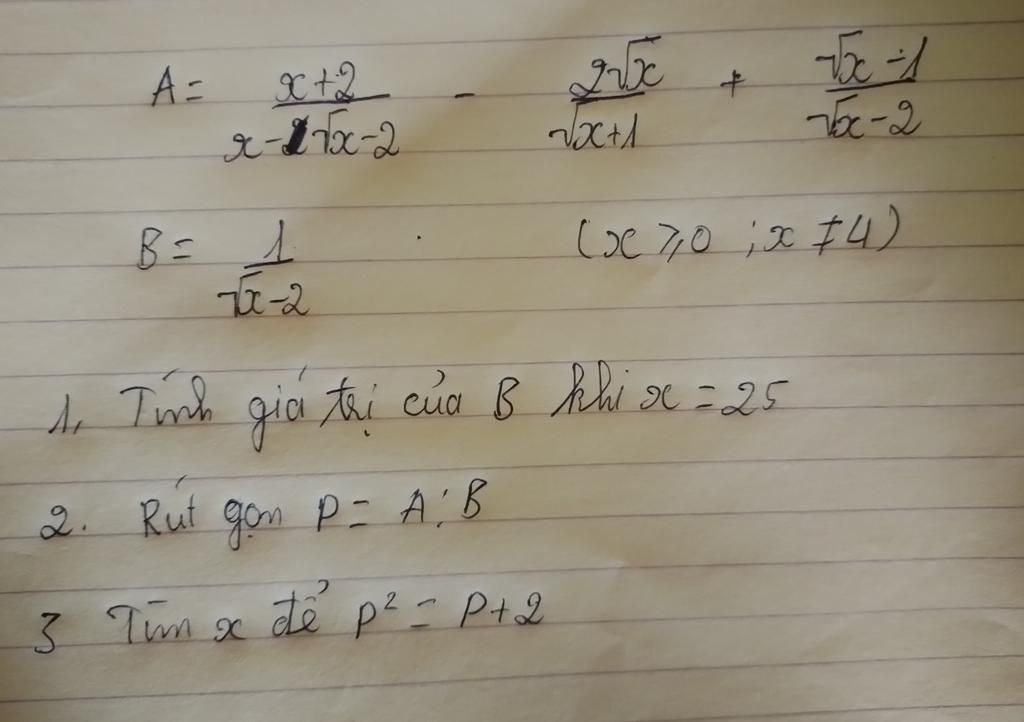 A = x+2 / x-√x-2 - 2√x / √x+1 + √x-1 / √x-2
B = 1 / √x-2 (x ≥ 0 ; x ≠ 4)
1, Tính giá trị của B khi x = 25
2. Rút gọn P = A : B
3 Tìm x để P² = P+2